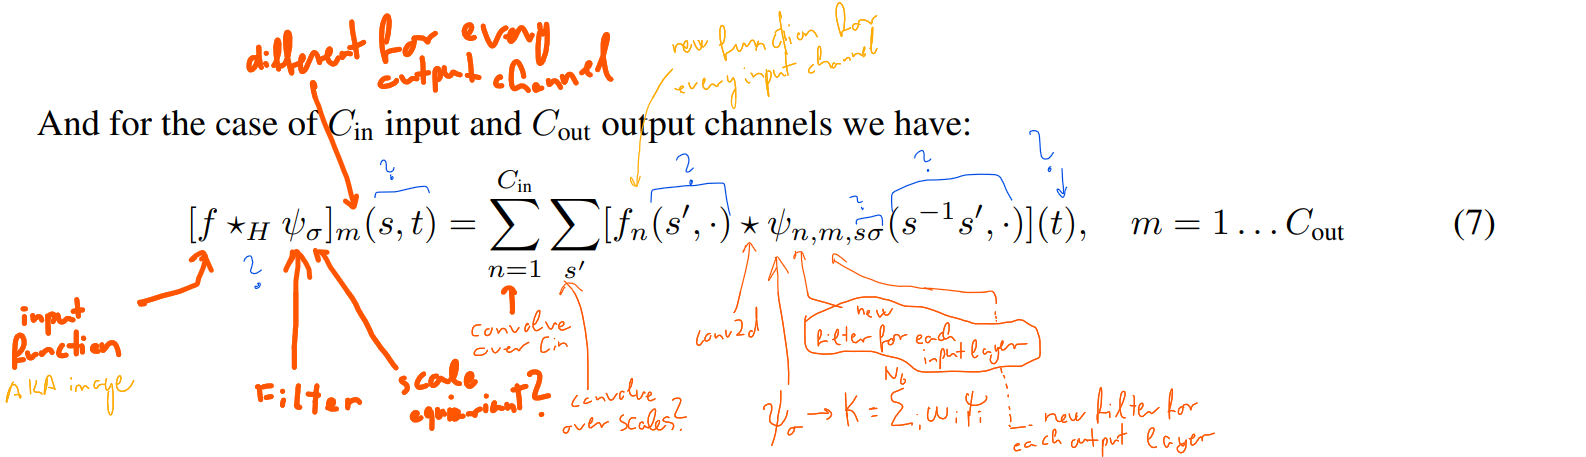 different for every
output channel
new function for
every input channel
And for the case of C_in input and C_out output channels we have:
? ? ? ? ?
[f ⋆_H ψ_σ]_m(s, t) = ∑_{n=1}^{C_in} ∑_{s′} [f_n(s′, ·) ⋆ ψ_{n,m,sσ}(s^{−1}s′, ·)](t), m = 1 … C_out (7)
?
input
function
AKA image
Filter
scale
equivariant?
convolve
over Cin
convolve
over scales?
conv2d
new
filter for each
input layer
ψ_σ → K = Σ_i^{N_b} w_i ψ_i
new filter for
each output layer